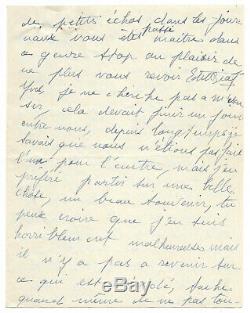 de petits échos dans les jour
naux vous êtes passé maître dans
ce genre stop au plaisir de
ne plus vous revoir
je ne cherche pas a m'en
sir, cela devait finir un jour
entre nous, depuis longtemps je
savais que nous n'étions pas fait
l'un pour l'autre, mais j'en
préféré partir sur une belle
chose, un beau souvenir, tu
peux croire que j'en suis
horriblement malheureuse mais
il n'y a pas a revenir sur
ce qui est Sache
quand même de ne pas tou-